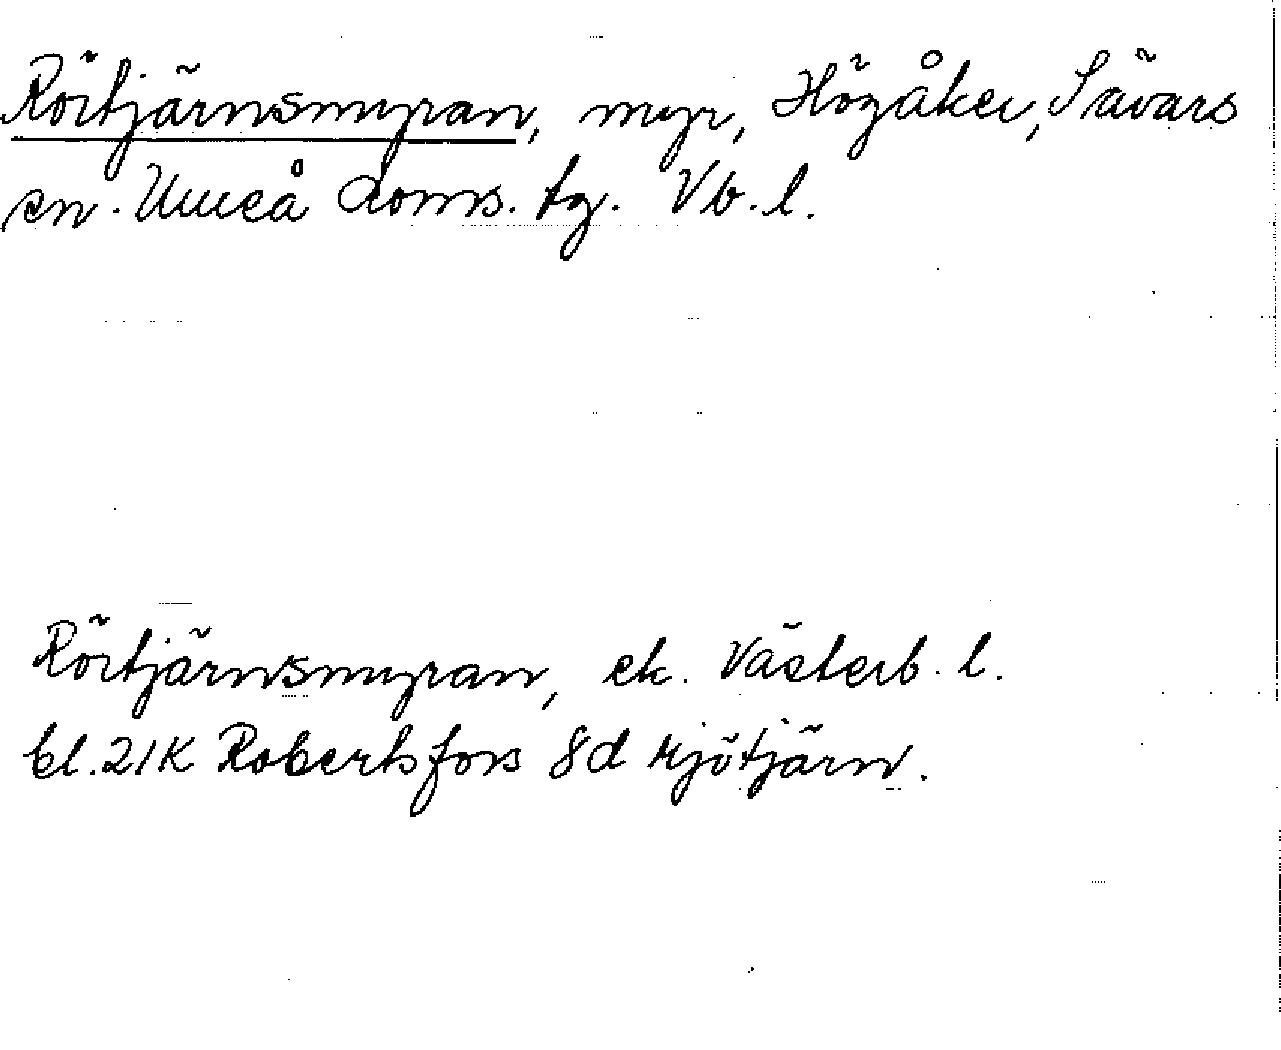 Rörtjärnsmyran, myr, Högåker, Sävars
sn. Umeå doms. tg. Vb. l.
Rörtjärnsmyran, ek. Västerb. l.
bl. 21K Robertsfors 8d Mjötjärn.